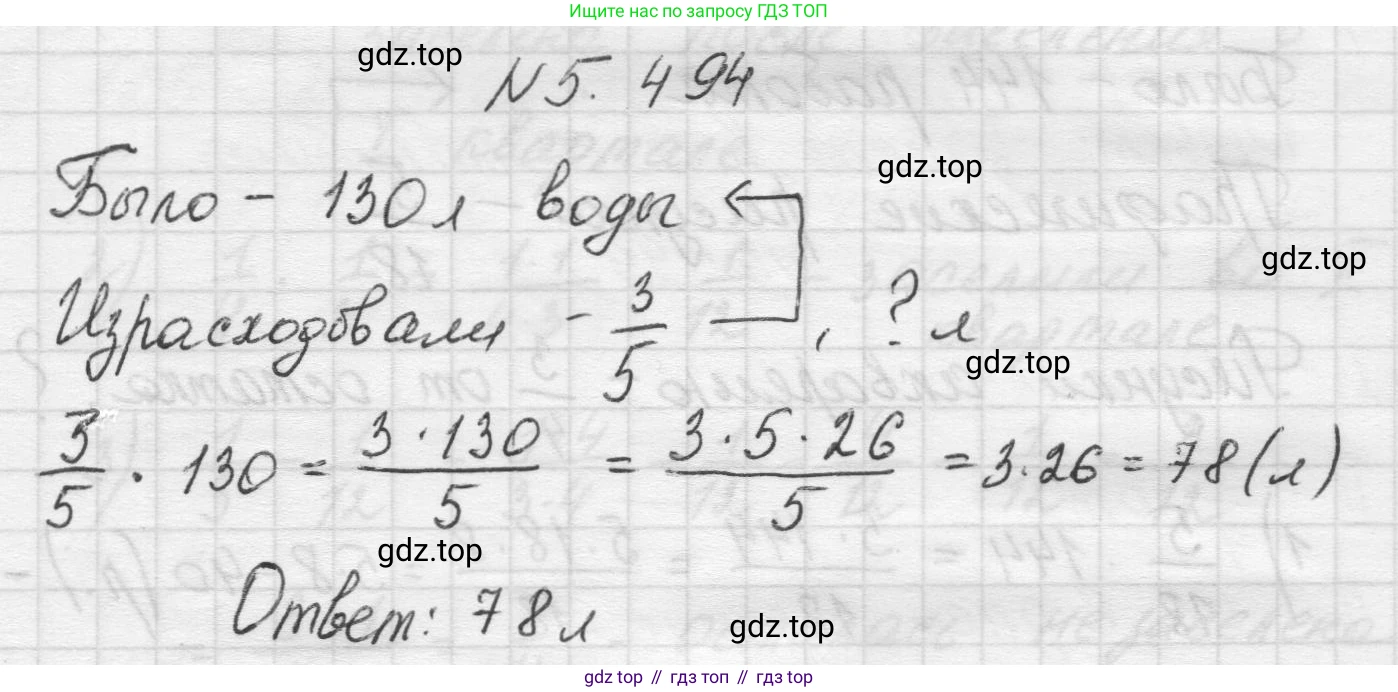 Ищите нас по запросу ГДЗ ТОП
gdz.top
N 5. 494
Было - 130 л воды
gdz.top
gdz.top
Израсходовали - 3/5 , ? л
gdz.top
3/5 · 130 = 3 · 130/5 = 3 · 5 · 26/5 = 3 · 26 = 78 (л)
gdz.top
Ответ: 78 л
gdz.top
gdz top // гдз топ // gdz top